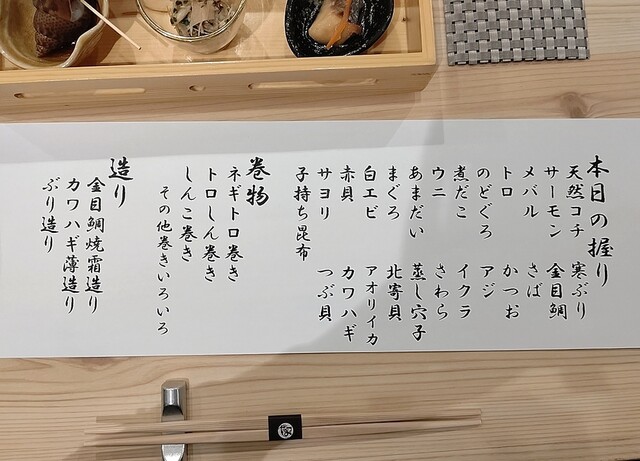 本日の握り
天然コチ　寒ぶり
サーモン　金目鯛
メバル　さば
トロ　かつお
のどぐろ　アジ
煮だこ　イクラ
ウニ　さわら
あまだい　蒸し穴子
まぐろ　北寄貝
白エビ　アオリイカ
赤貝　カワハギ
サヨリ　つぶ貝
子持ち昆布
巻物
ネギトロ巻き
トロしん巻き
しんこ巻き
その他巻きいろいろ
造り
金目鯛焼霜造り
カワハギ薄造り
ぶり造り